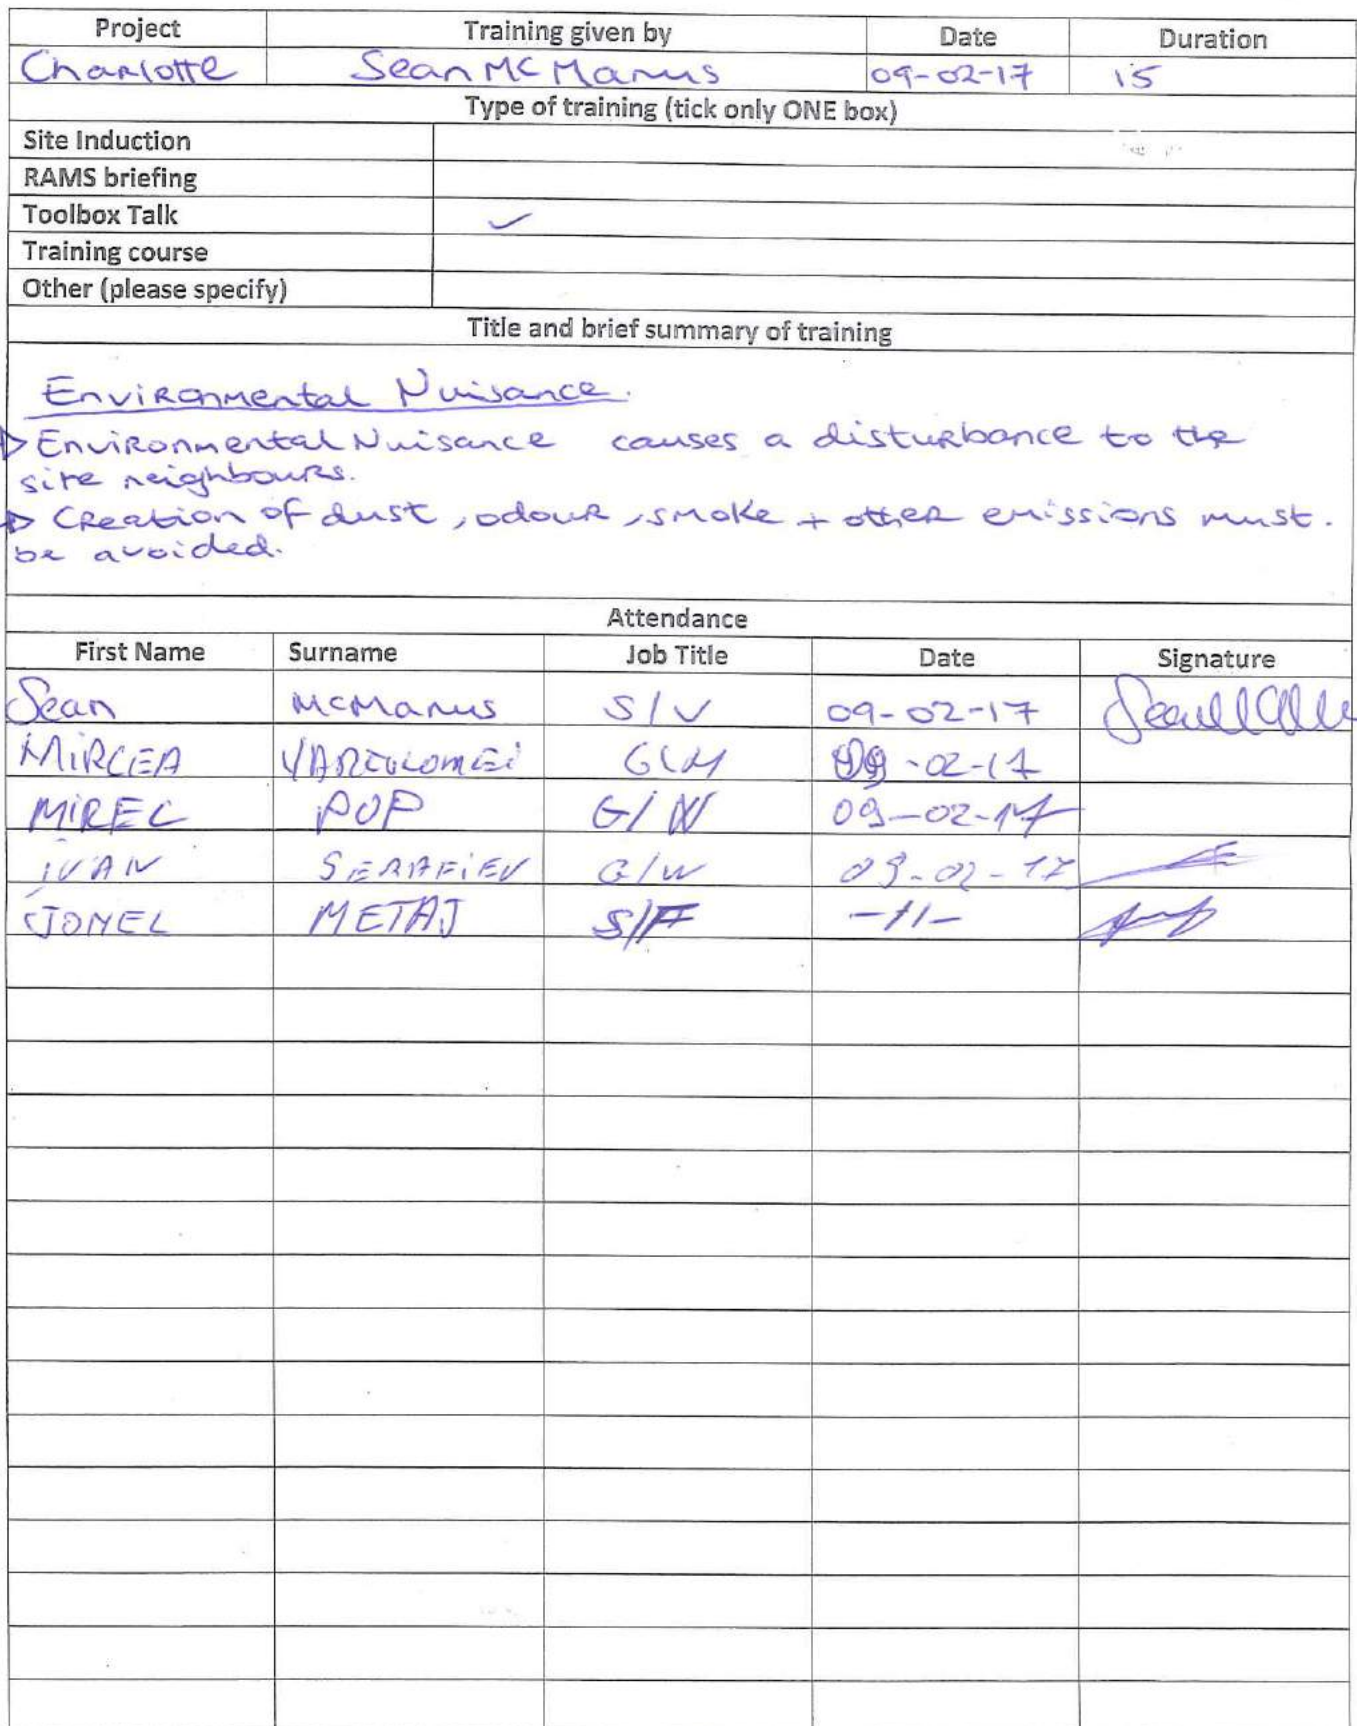 Project Training given by Date Duration
Charlotte Sean McManus 09-02-17 15
Type of training (tick only ONE box)
Site Induction
RAMS briefing
Toolbox Talk ✓
Training course
Other (please specify)
Title and brief summary of training
Environmental Nuisance.
▷ Environmental Nuisance causes a disturbance to the
site neighbours.
▷ Creation of dust, odour, smoke + other emissions must.
be avoided.
Attendance
First Name Surname Job Title Date Signature
Sean McManus S/V 09-02-17
MIRCEA VARTOLOMEI 09-02-17
MIREC POP G/W 09-02-17
IVAN SERAFIEV G/W 09-02-17
METAJ S/F -11-